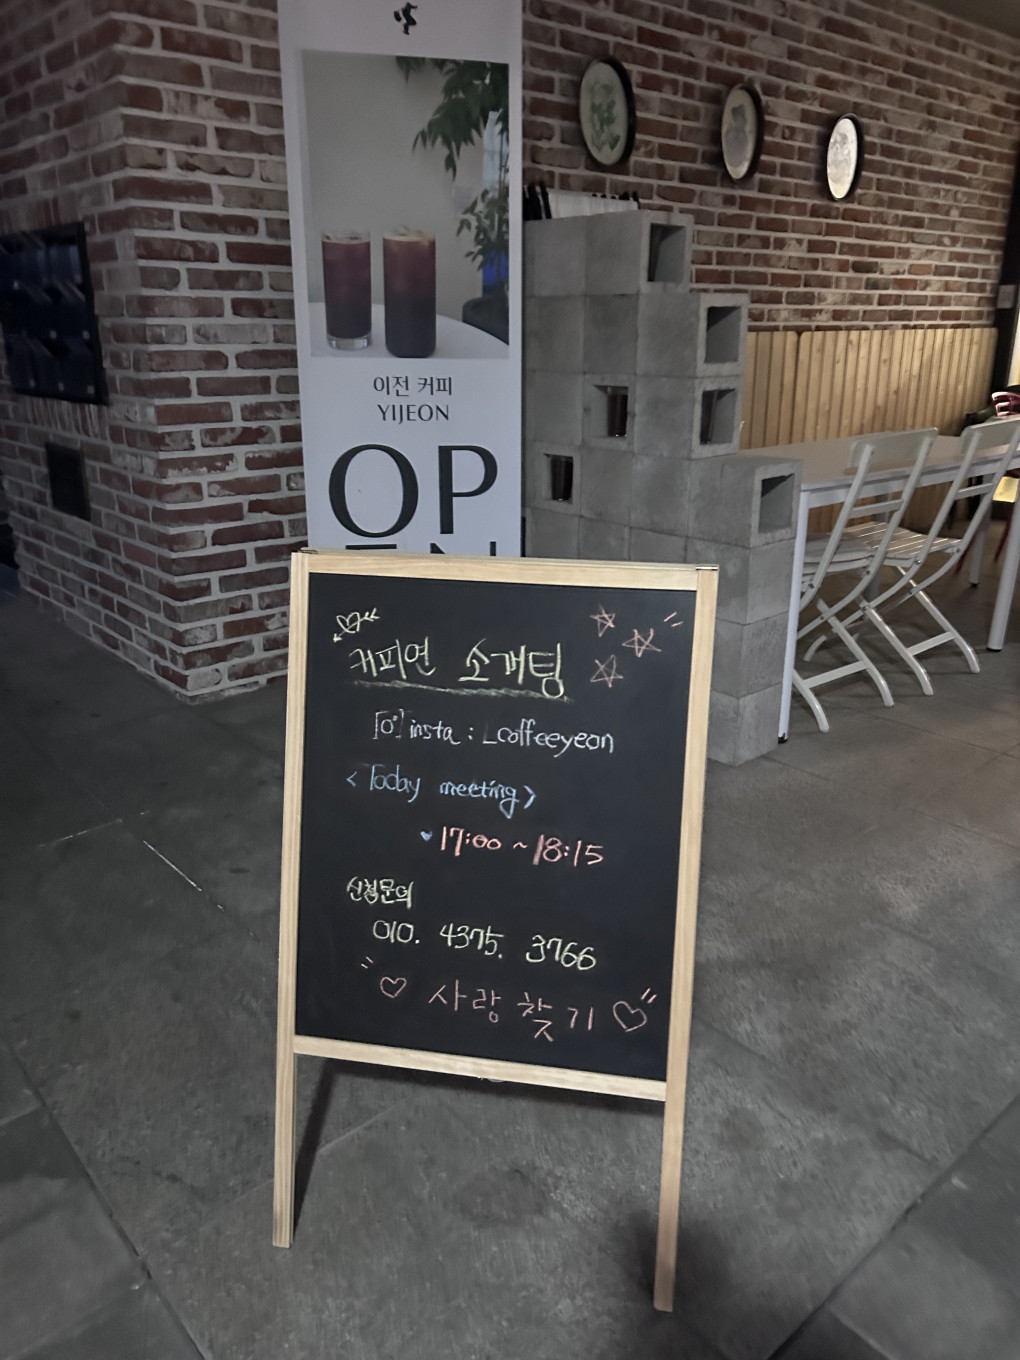 이전 커피
YIJEON
OPEN
커피연 소개팅
insta : _coffeeyeon
<Today meeting>
17:00 ~ 18:15
신청문의
010. 4375. 3766
사랑 찾기